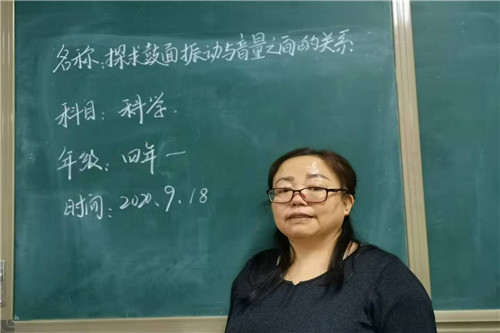 名称:探求鼓面振动与音量之间的关系
科目:科学.
年级:四年一
时间:2020、9、18